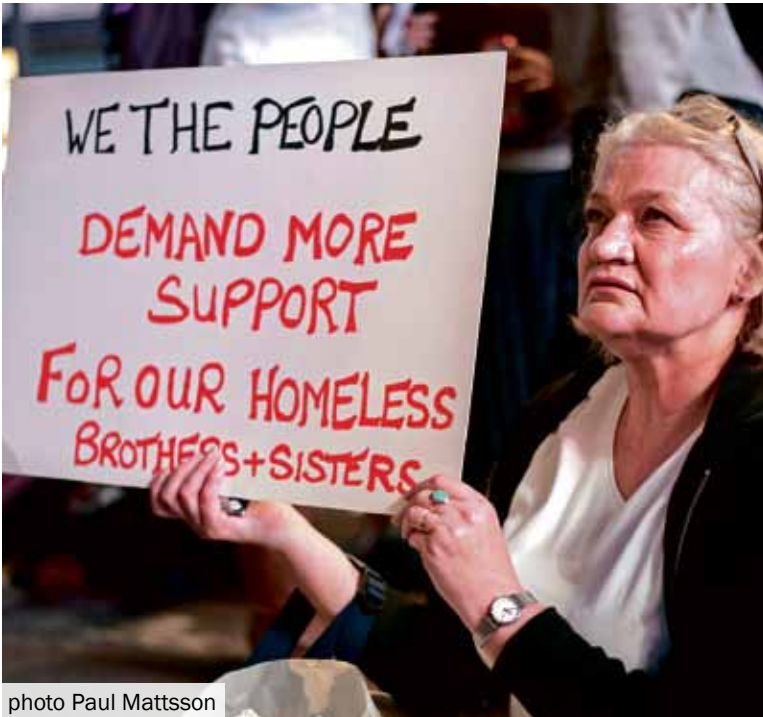 WE THE PEOPLE
DEMAND MORE
SUPPORT
FOR OUR HOMELESS
BROTHERS+SISTERS
photo Paul Mattsson